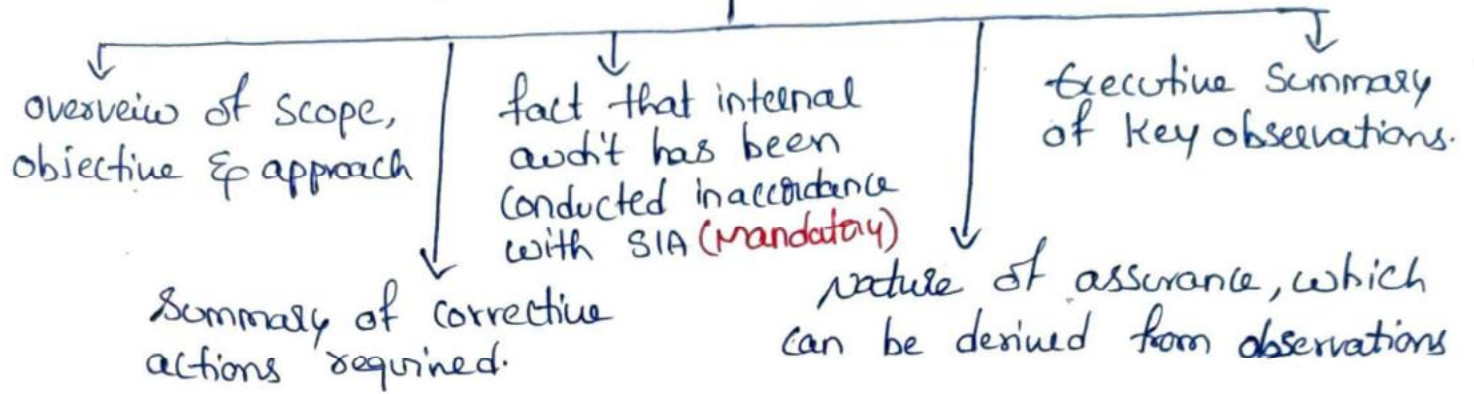 overveiw of scope,
objective & approach
Summary of corrective
actions required.
fact that internal
audit has been
conducted inaccordance
with SIA (Mandatory)
Nature of assurance, which
can be derived from observations
Executive Summary
of Key observations.